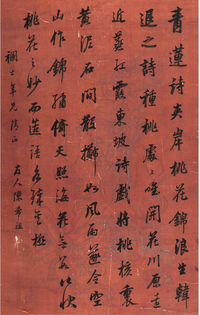 青蓮詩夾岸桃花錦浪生韓
退之詩種桃處處唯開花川原遠
近蒸紅霞東坡詩戲將桃核裹
黃泥石間散擲如風雨令空
山作錦繡倚天照海花無數此狀
桃花之妙而造語各臻極
士年兄清正
友人陳希祖